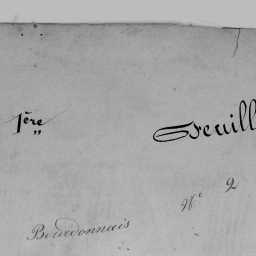 1ère Feuill
Nº 2
Bourdonnais